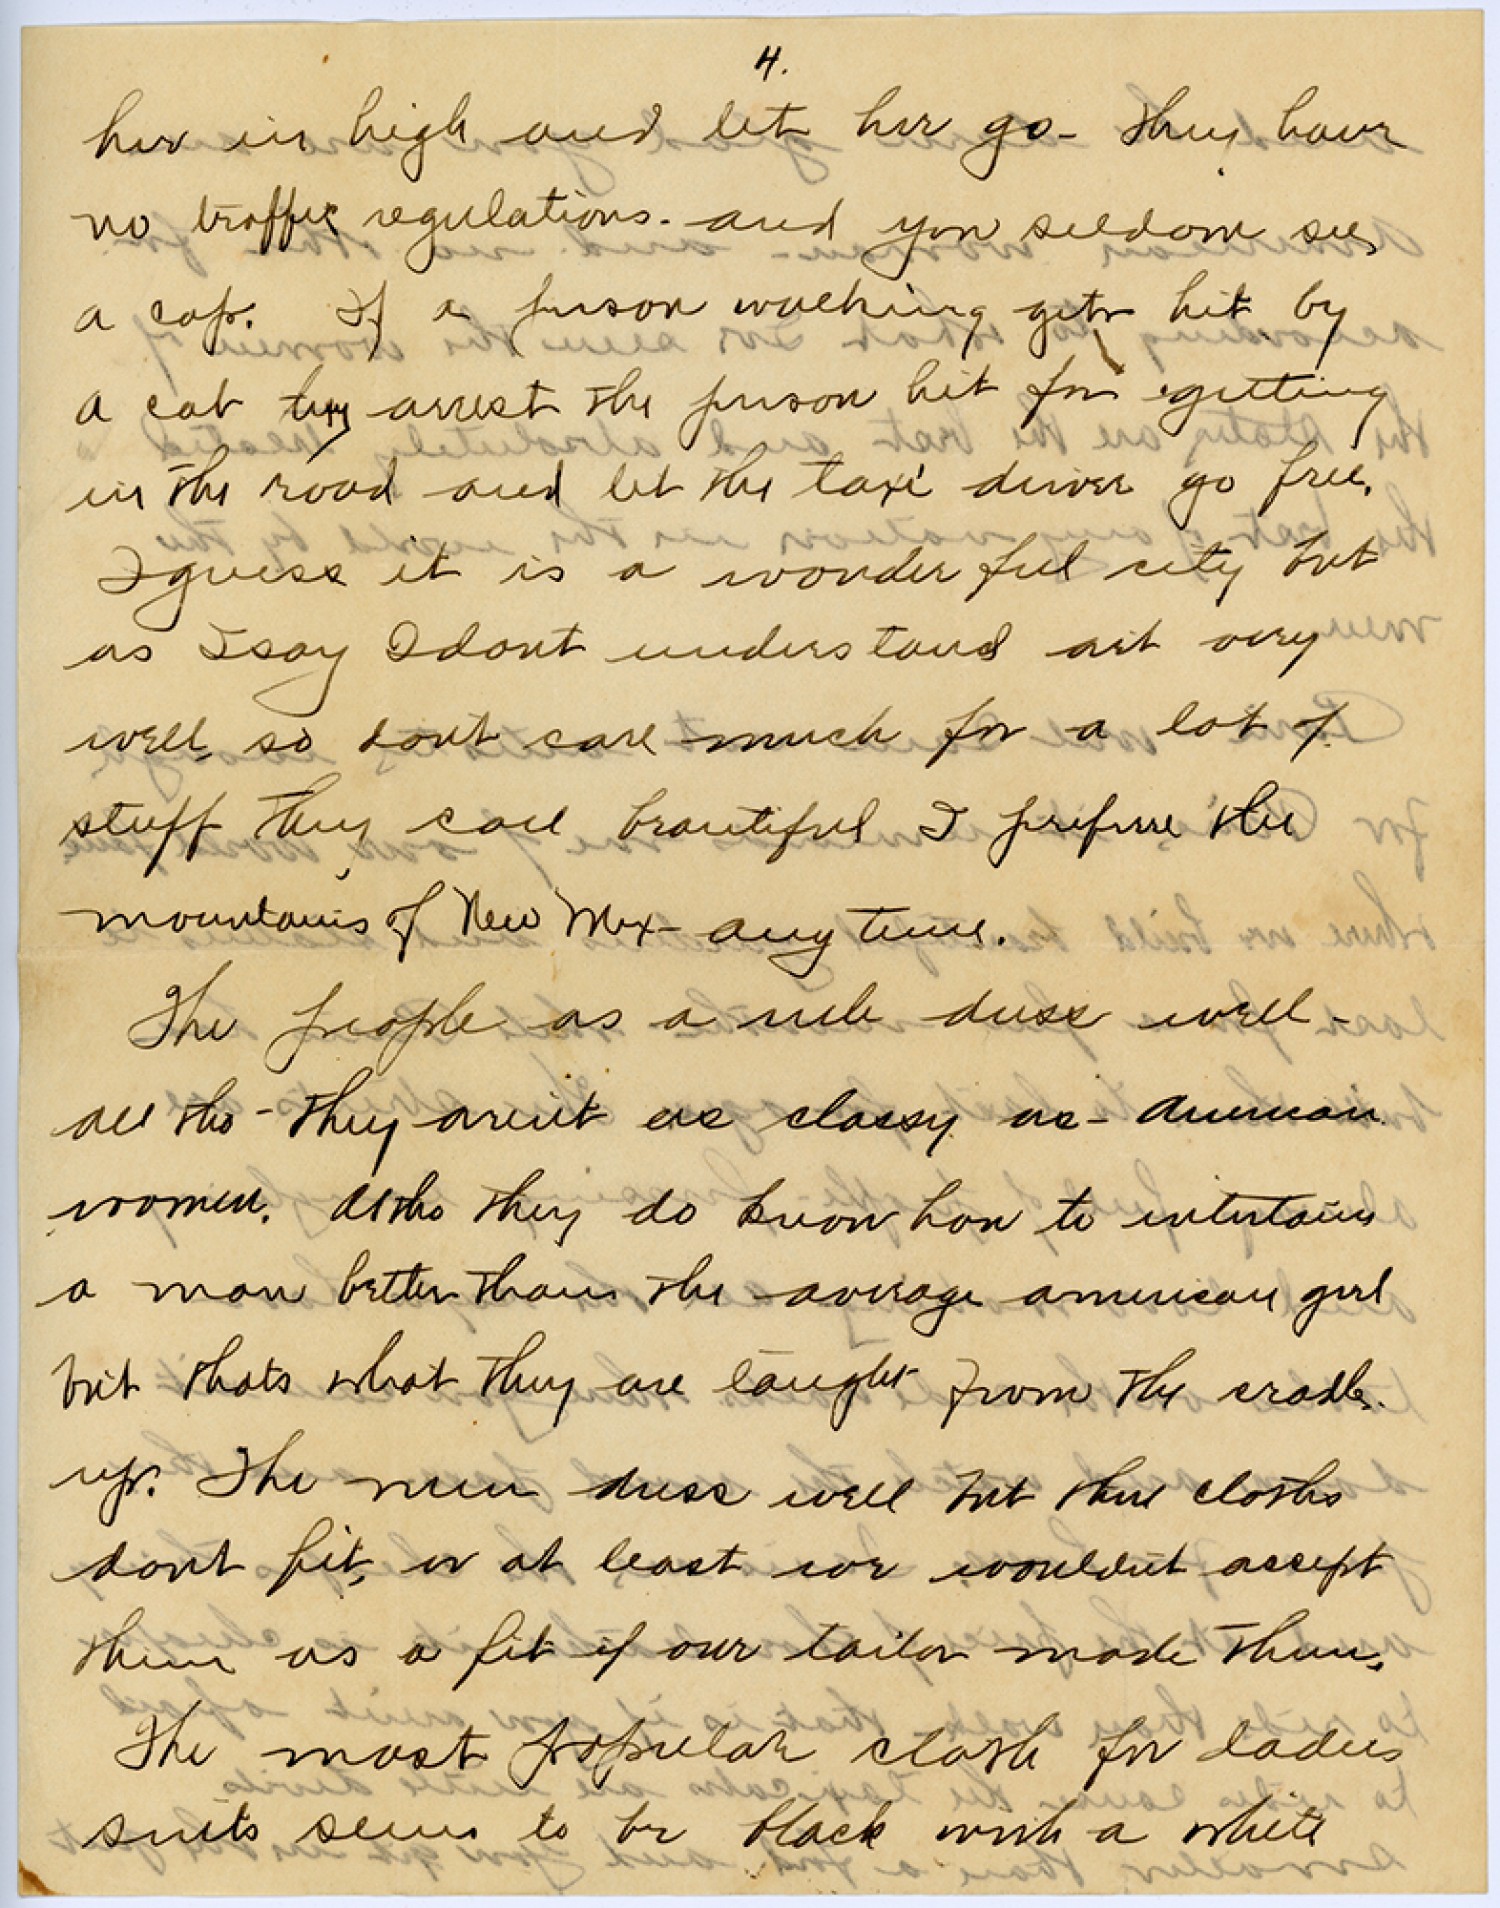 4.
her in high and let her go- They have
no traffic regulations. and you seldom see
a cop. If a person walking gets hit by
a cab they arrest the person hit for getting
in the road and let the taxi driver go free.
I guess it is a wonderful city but
as I say I dont understand art very
well, so dont care much for a lot of
stuff they call beautiful I preferre the
mountains of New Mex- any time.
The people as a rule dress well-
all tho- They aren't as classy as- American
women. Altho they do know how to intertain
a man better than the average american girl
but thats what they are taught from the cradle
up. The men dress well but there cloths
dont fit, or at least we wouldnt accept
them as a fit if our tailor made them.
The most popular cloth for ladies
suits seems to be black with a white